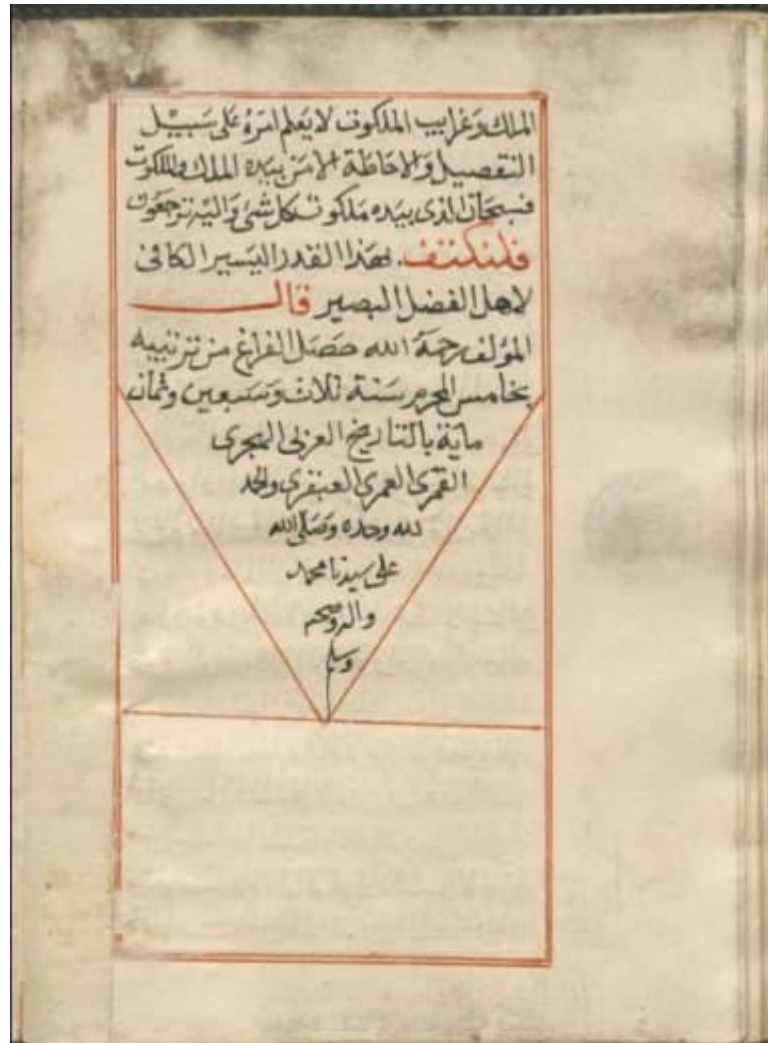 الملك وغرايب الملكوت لا يعلم امره على سبيل
التفصيل والاحاطة الا من بيده الملك والملكوت
فسبحان الذى بيده ملكوت كل شئ واليه ترجعون
فلنكتف بهذا القدر اليسير الكافى
لاهل الفضل البصير قال
المؤلف رحمة الله حصل الفراغ من ترتيبه
بخامس المحرم سنة ثلاث وسبعين وثمان
ماية بالتاريخ العربى الهجرى
القمرى العمرى والحمد
لله وحده وصلى الله
على سيدنا محمد
واله وصحبه
وسلم